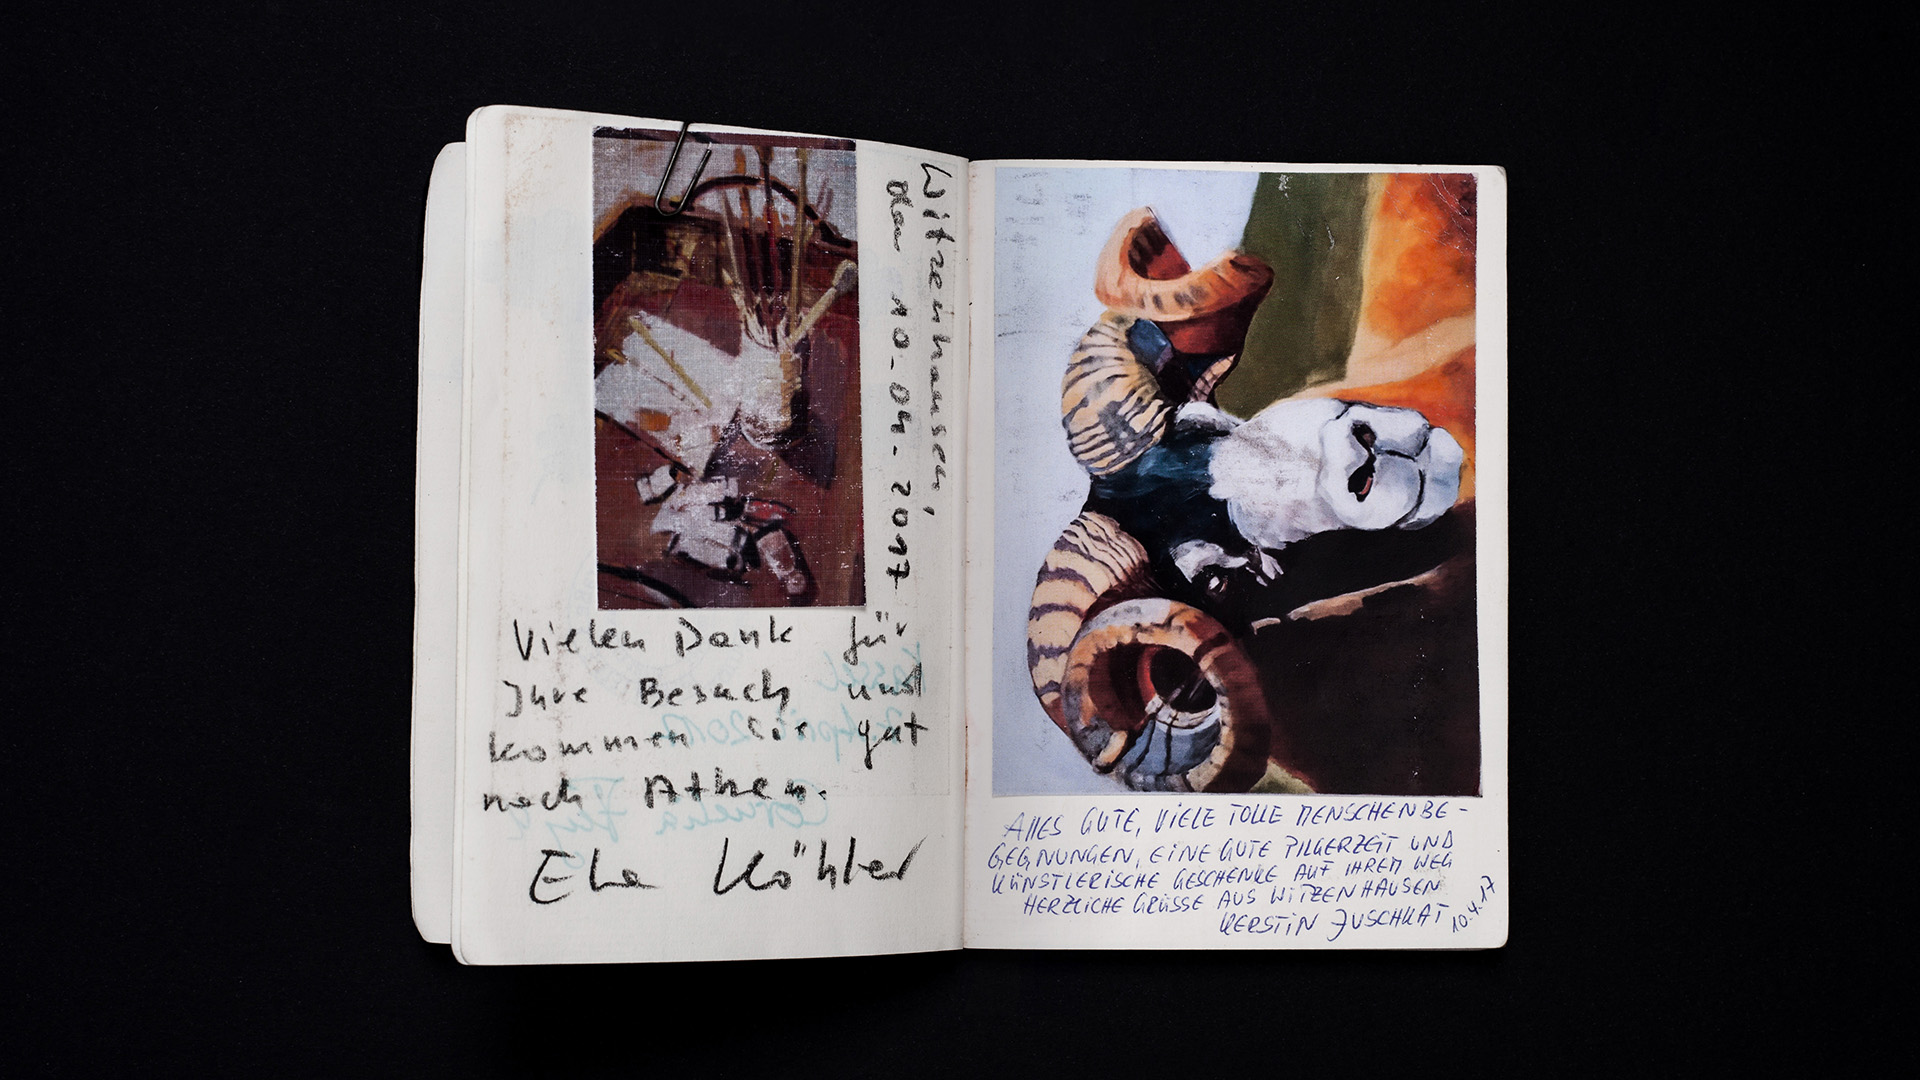 Witzenhausen,
den 10.04.2017
Vielen Dank für
Ihre Besuch und
kommen Sie gut
nach Athen.
Köhler
ALLES GUTE, VIELE TOLLE MENSCHENBE-
GEGNUNGEN, EINE GUTE PILGERZEIT UND
KÜNSTLERISCHE GESCHENKE AUF IHREM WEG
HERZLICHE GRÜSSE AUS WITZENHAUSEN
KERSTIN JUSCHKAT 10.4.17